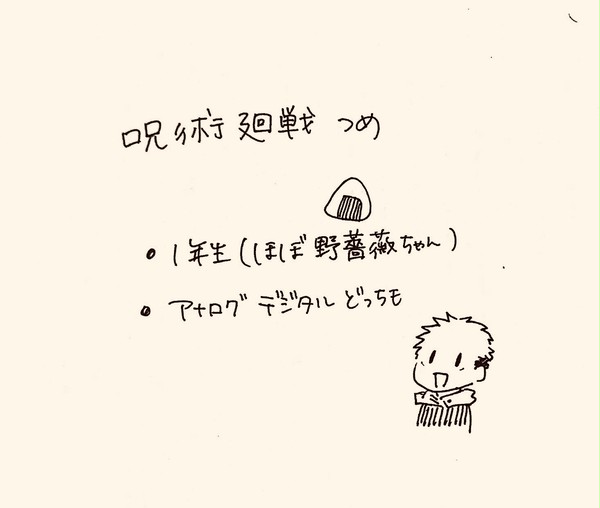 呪術廻戦 つめ
・1年生(ほぼ野薔薇ちゃん)
・アナログ デジタル どっちも